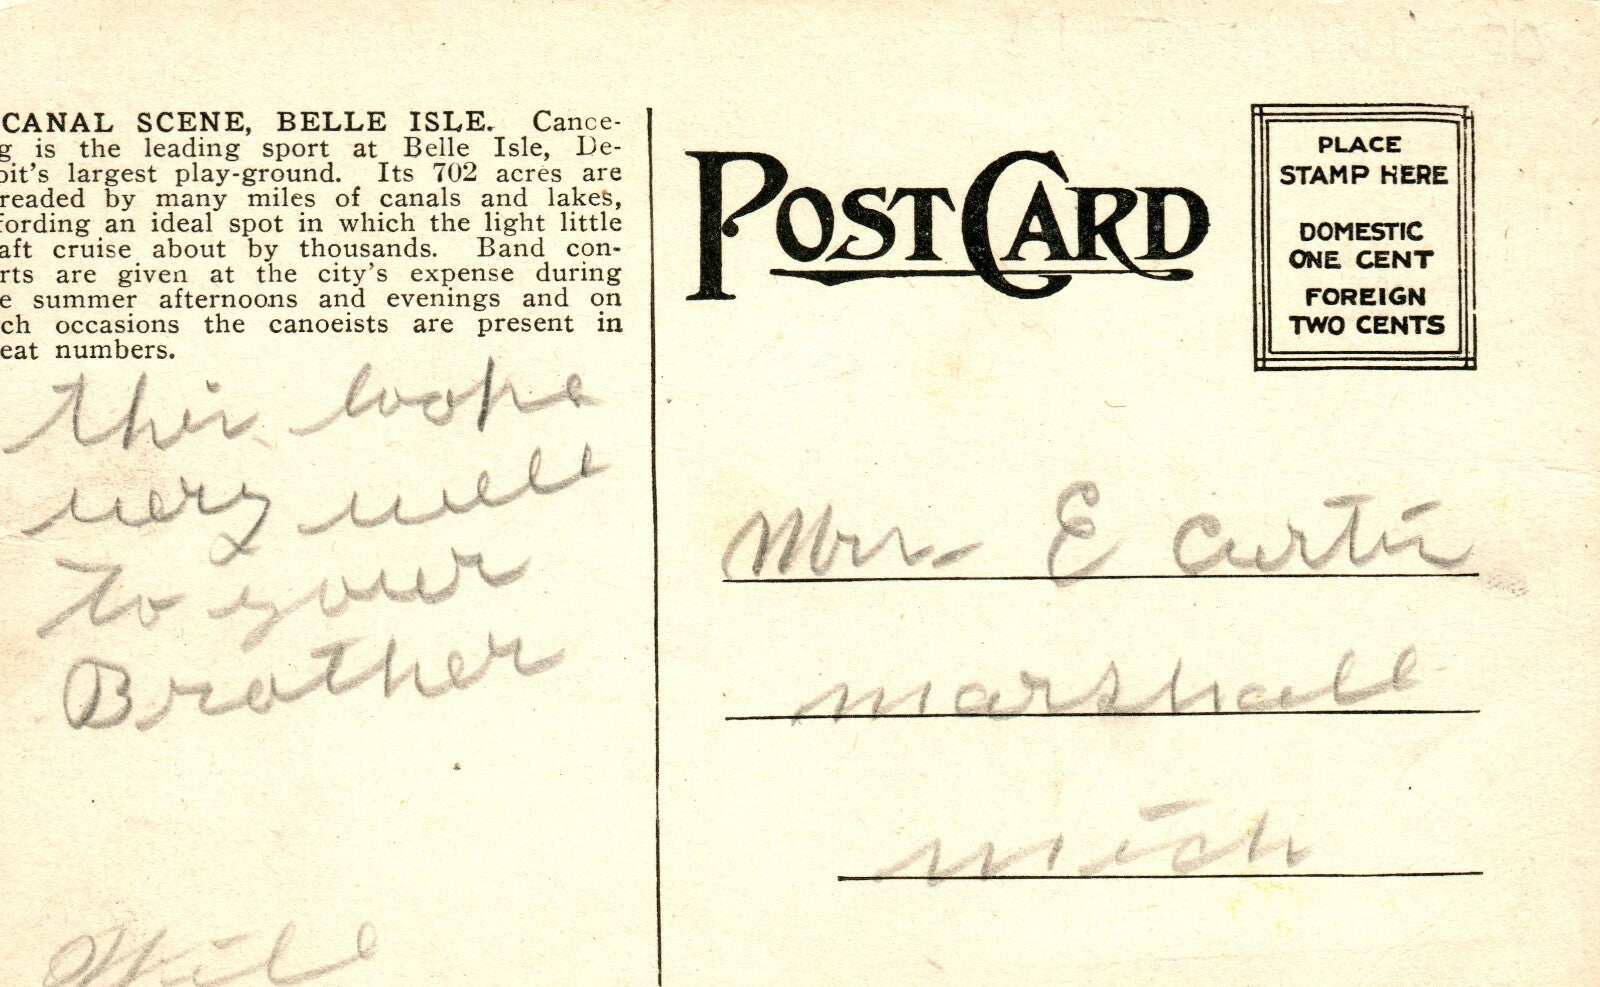 CANAL SCENE, BELLE ISLE. Canoe-
g is the leading sport at Belle Isle, De-
oit's largest play-ground. Its 702 acres are
readed by many miles of canals and lakes,
fording an ideal spot in which the light little
aft cruise about by thousands. Band con-
rts are given at the city's expense during
e summer afternoons and evenings and on
ch occasions the canoeists are present in
eat numbers.
this looks
very well
to your
Brother
Will
POST CARD
PLACE
STAMP HERE
DOMESTIC
ONE CENT
FOREIGN
TWO CENTS
Mrs E Curtis
marshall
mich